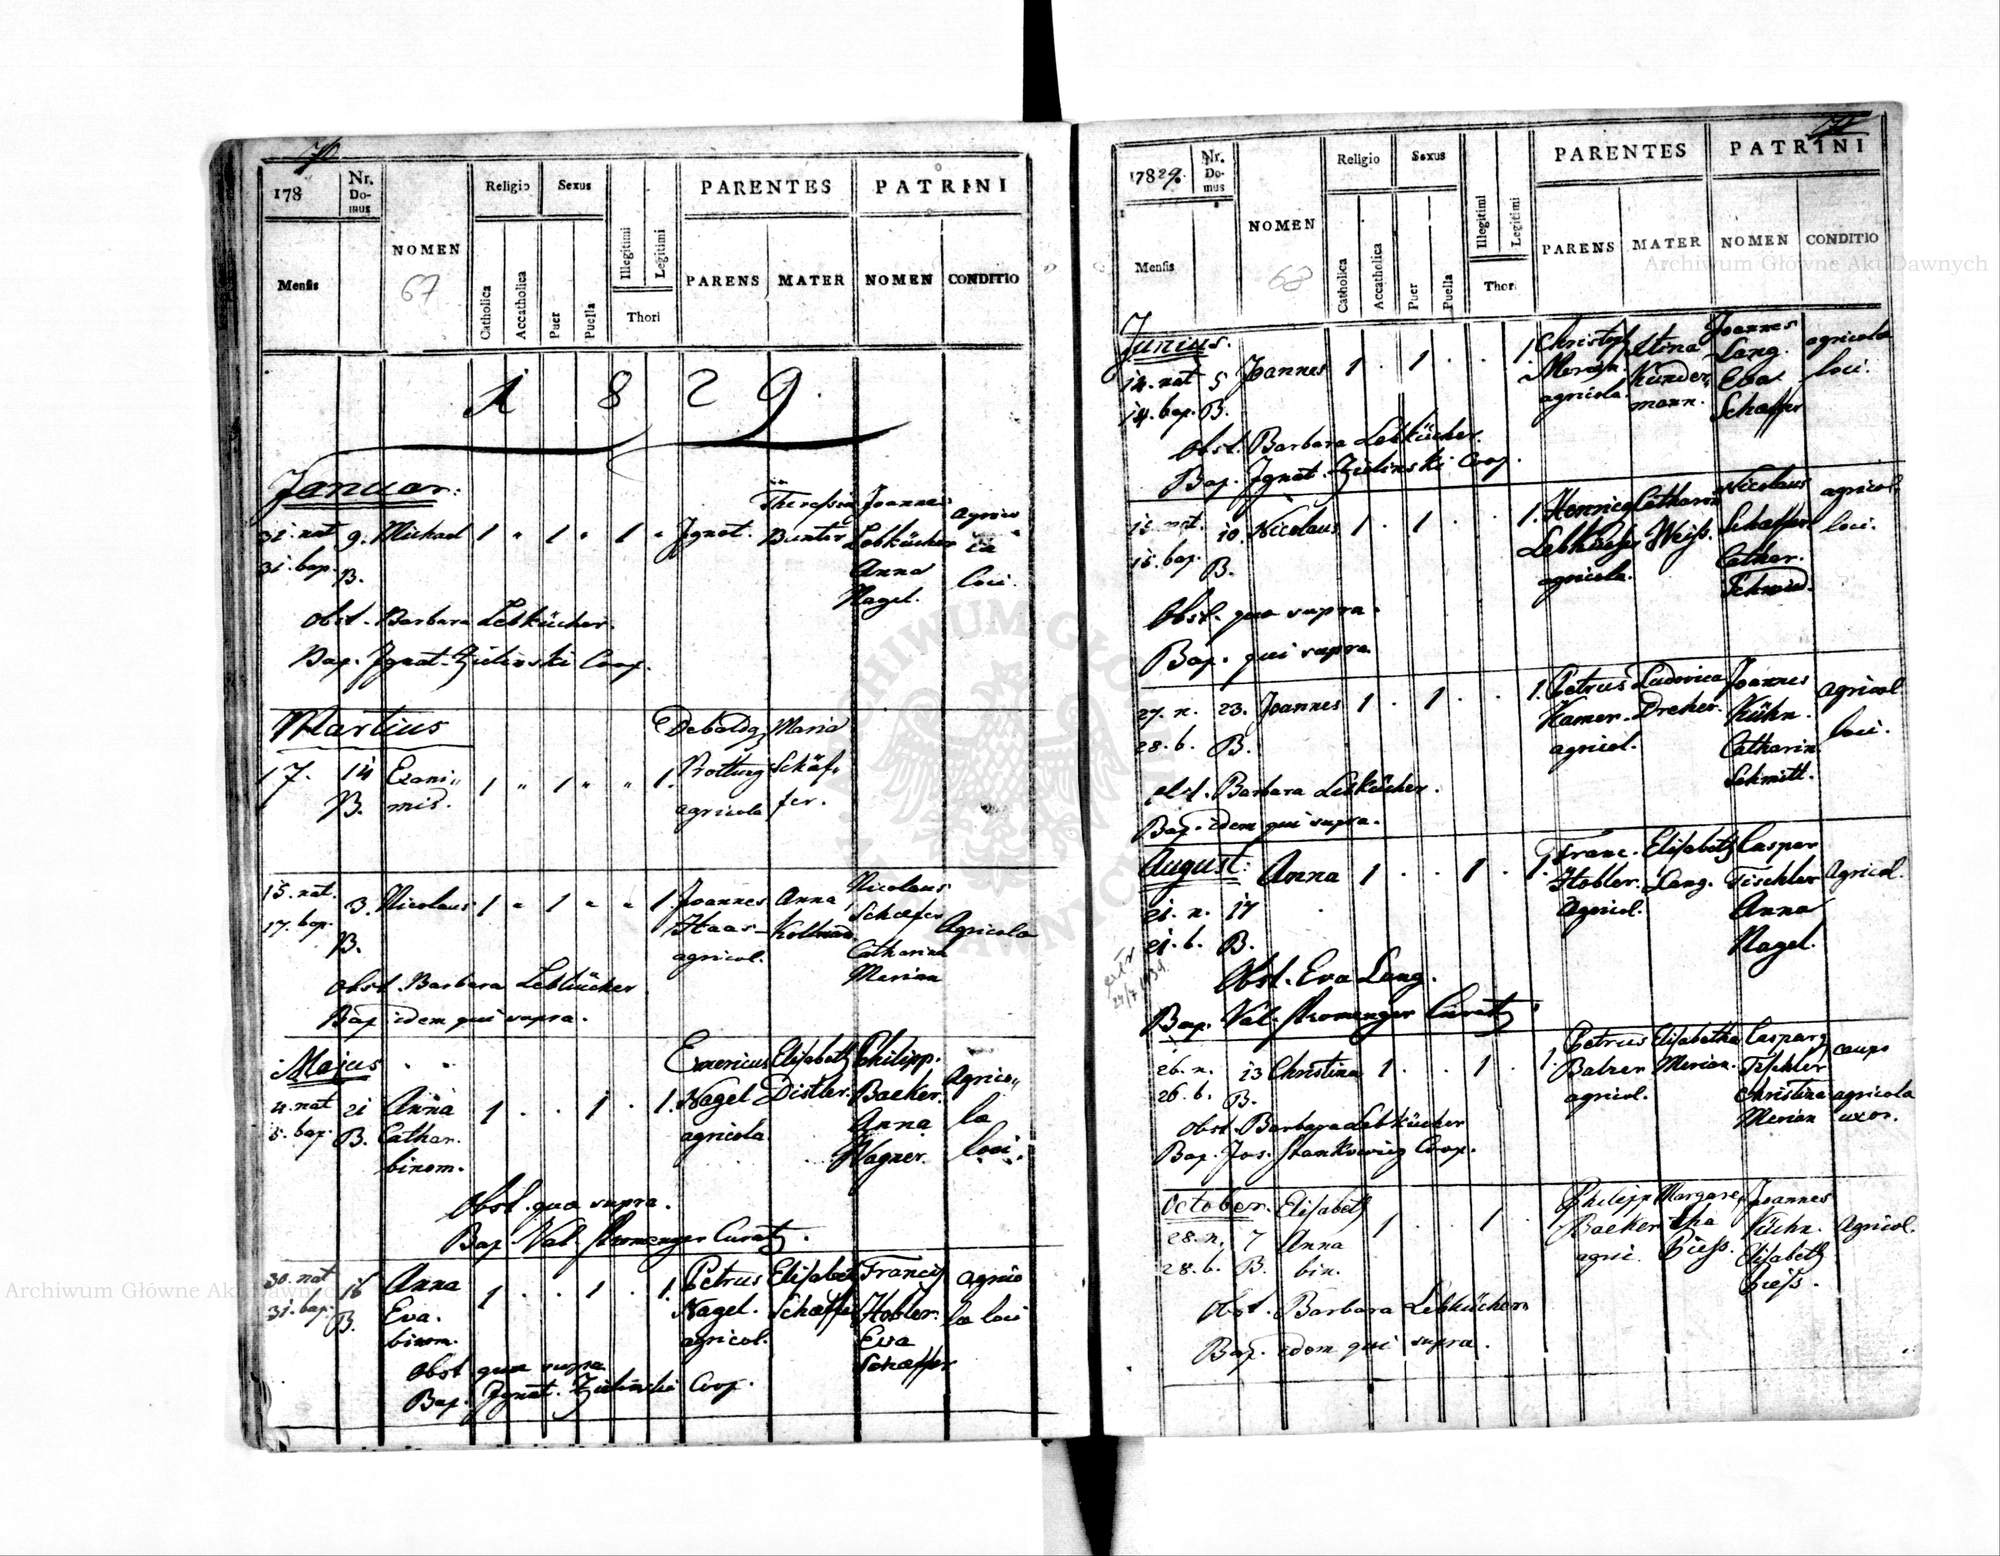 178
Nr. Domus
NOMEN
67
Religio
Sexus
PARENTES
PATRINI
Mensis
Catholica
Accatholica
Puer
Puella
Illegitimi
Legitimi
Thori
PARENS
MATER
NOMEN
CONDITIO
1829.
Januar:
Theresia Joannes
31. nat 9. Michael 1 " 1 " 1 " Ignat. Bunter Lebkücher Agrico
31. bap. B. Anna la
Nagel. loci.
Obst. Barbara Lebkücher.
Bap. Ignat. Zielinski Coop.
Martius
Maria
17. 14 Exani„ 1 " 1 " " 1. Schäf„
B. mis. agricola fer.
15. nat. 3. Nicolaus 1 " 1 " " 1. Joannes Anna Nicolaus
17. bap. B. Haas Schaefer Agricola
agricol. Catharina
Merian
Obst. Barbara Lebkücher
Bap. idem qui supra.
Majus
Emericus Elisabeth Philipp.
4. nat 21 Anna 1 . . 1 . 1. Nagel Distler. Baeker. Agrico„
5. bap. B. Cathar. agricola. Anna la
binom. Wagner. loci.
Obst. qua supra.
Bap. Val. Curat.
30. nat 16 Anna 1 . . 1 . 1. Petrus Elisabet Francis agrico
31. bap. B. Eva. Nagel. Schaeffer Hobler. la loci
binom. agricol. Eva
Schaeffer
Obst qua supra
Bap. Ignat. Zielinski Coop.
1829.
Nr. Domus
NOMEN
68
Religio
Sexus
PARENTES
PATRINI
Mensis
Catholica
Accatholica
Puer
Puella
Illegitimi
Legitimi
Thori
PARENS
MATER
NOMEN
CONDITIO
Junius.
Joannes
14. nat 5 Joannes 1 . 1 . . 1. Christoph Lang. agricola
14. bap. B. Merian. Kunder Eva loci.
agricola. mann. Schaeffer
Obst. Barbara Lebkücher.
Bap. Ignat. Zielinski Coop.
15. nat. 10. Nicolaus 1 . 1 . . 1. Henric Catharin Nicolaus agricol.
15. bap. B. Lebkücher Weiß. Schaeffer loci.
agricola. Cathar.
Schmid.
Obst. qua supra.
Bap. qui supra
27. n. 23. Joannes 1 . 1 . . 1. Petrus Ludovica Joannes agricol
28. b. B. Hamer. Dreher. Kühn. loci.
agricol. Catharin
Schmitt.
obst. Barbara Lebkücher.
Bap. idem qui supra.
August: Anna 1 . . 1 . 1. Franc. Elisabeth Caspar
21. n. 17 Hobler. Lang. Tischler Agricol.
21. b. B. Agricol. Anna
Nagel.
Obst. Eva Lang.
Bap. Val. Curat.
26. n. 13 Christina 1 . . 1 . 1. Petrus Elisabetha Caspar caupo
26. b. B. Balzer Merian. Tischler
agricol. Christina agricola
Merian uxor.
Obst. Barbara Lebkücher
Bap. Jos. Coop.
October. Elisabeth 1 . . 1 . 1. Philipp Margare„ Joannes
28. n. 7 Anna Baeker tha Kühn. Agricol.
28. b. B. bin. agric. Elisabeth
Obst. Barbara Lebkücher
Bap. idem qui supra.
Archiwum Główne Akt Dawnych
Archiwum Główne Akt Dawnych
ARCHIWUM GŁÓWNE AKT DAWNYCH